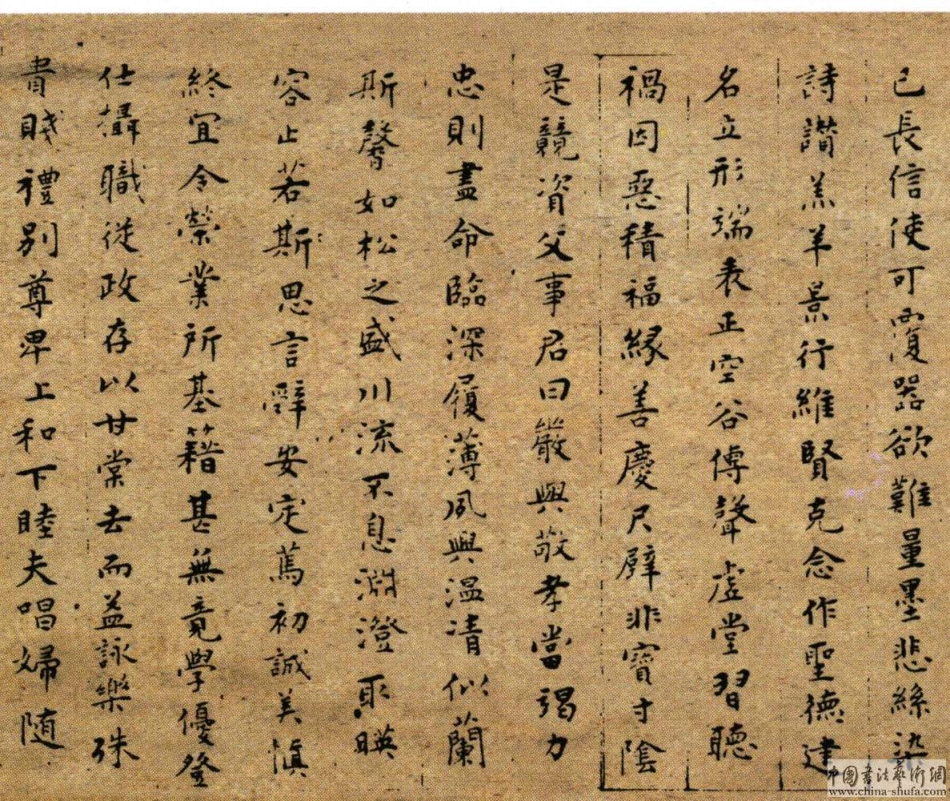 已長信使可覆器欲難量墨悲絲染
詩讚羔羊景行維賢克念作聖德建
名立形端表正空谷傳聲虛堂習聽
禍因惡積福緣善慶尺璧非寶寸陰
是競資父事君曰嚴與敬孝當竭力
忠則盡命臨深履薄夙興溫清似蘭
斯馨如松之盛川流不息淵澄取暎
容止若斯思言辭安定篤初誠美慎
終宜令榮業所基籍甚無竟學優登
仕攝職從政存以甘棠去而益詠樂殊
貴賤禮別尊卑上和下睦夫唱婦随
中國書法藝術網
www.china-shufa.com